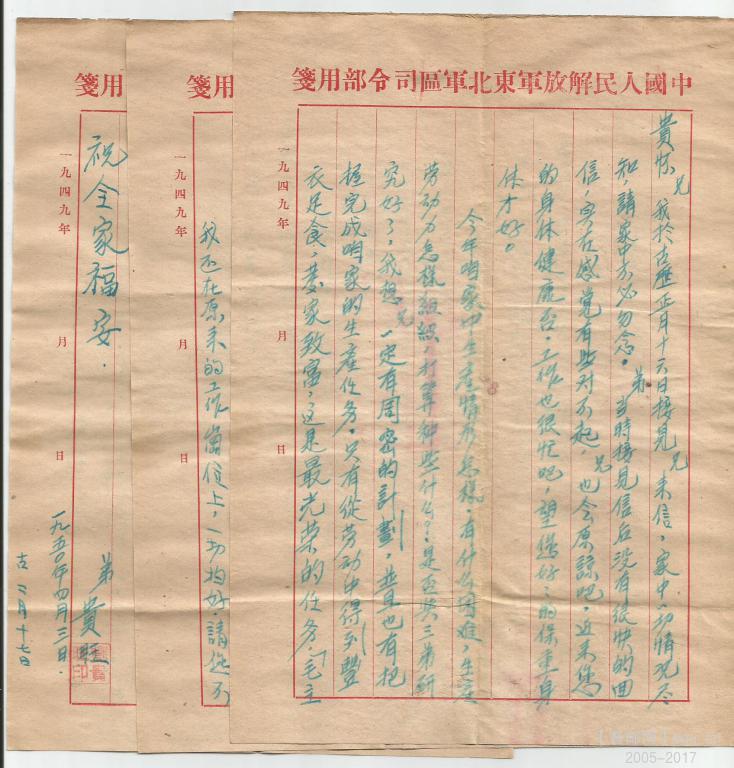 中國人民解放軍東北軍區司令部用箋
貴怀兄 我於古歷正月十六日接見兄来信，家中一切情況尽
知，請家中不必勿念。弟当時接見信后没有很快的回
信，实在感觉有些对不起，兄也会原諒吧，近来您
的身体健康否，工作也很忙吧，望您好好的保重身
体才好。
今年咱家中生產情形怎樣，有什么困难，生產
劳动力怎樣組織，打算种些什么？是否與三弟研
究好了，我想兄一定有周密的計劃，並且也有把
握完成咱家的生產任务。只有從劳动中得到豐
衣足食，發家致富，这是最光荣的任务，「毛主
一九四九年 月 日
用箋
我还在原来的工作崗位上，一切均好，請您不
一九四九年 月 日
用箋
祝全家福安．
弟 貴旺
一九五〇年四月三日．
古二月十七日
一九四九年 月 日
2005-2017